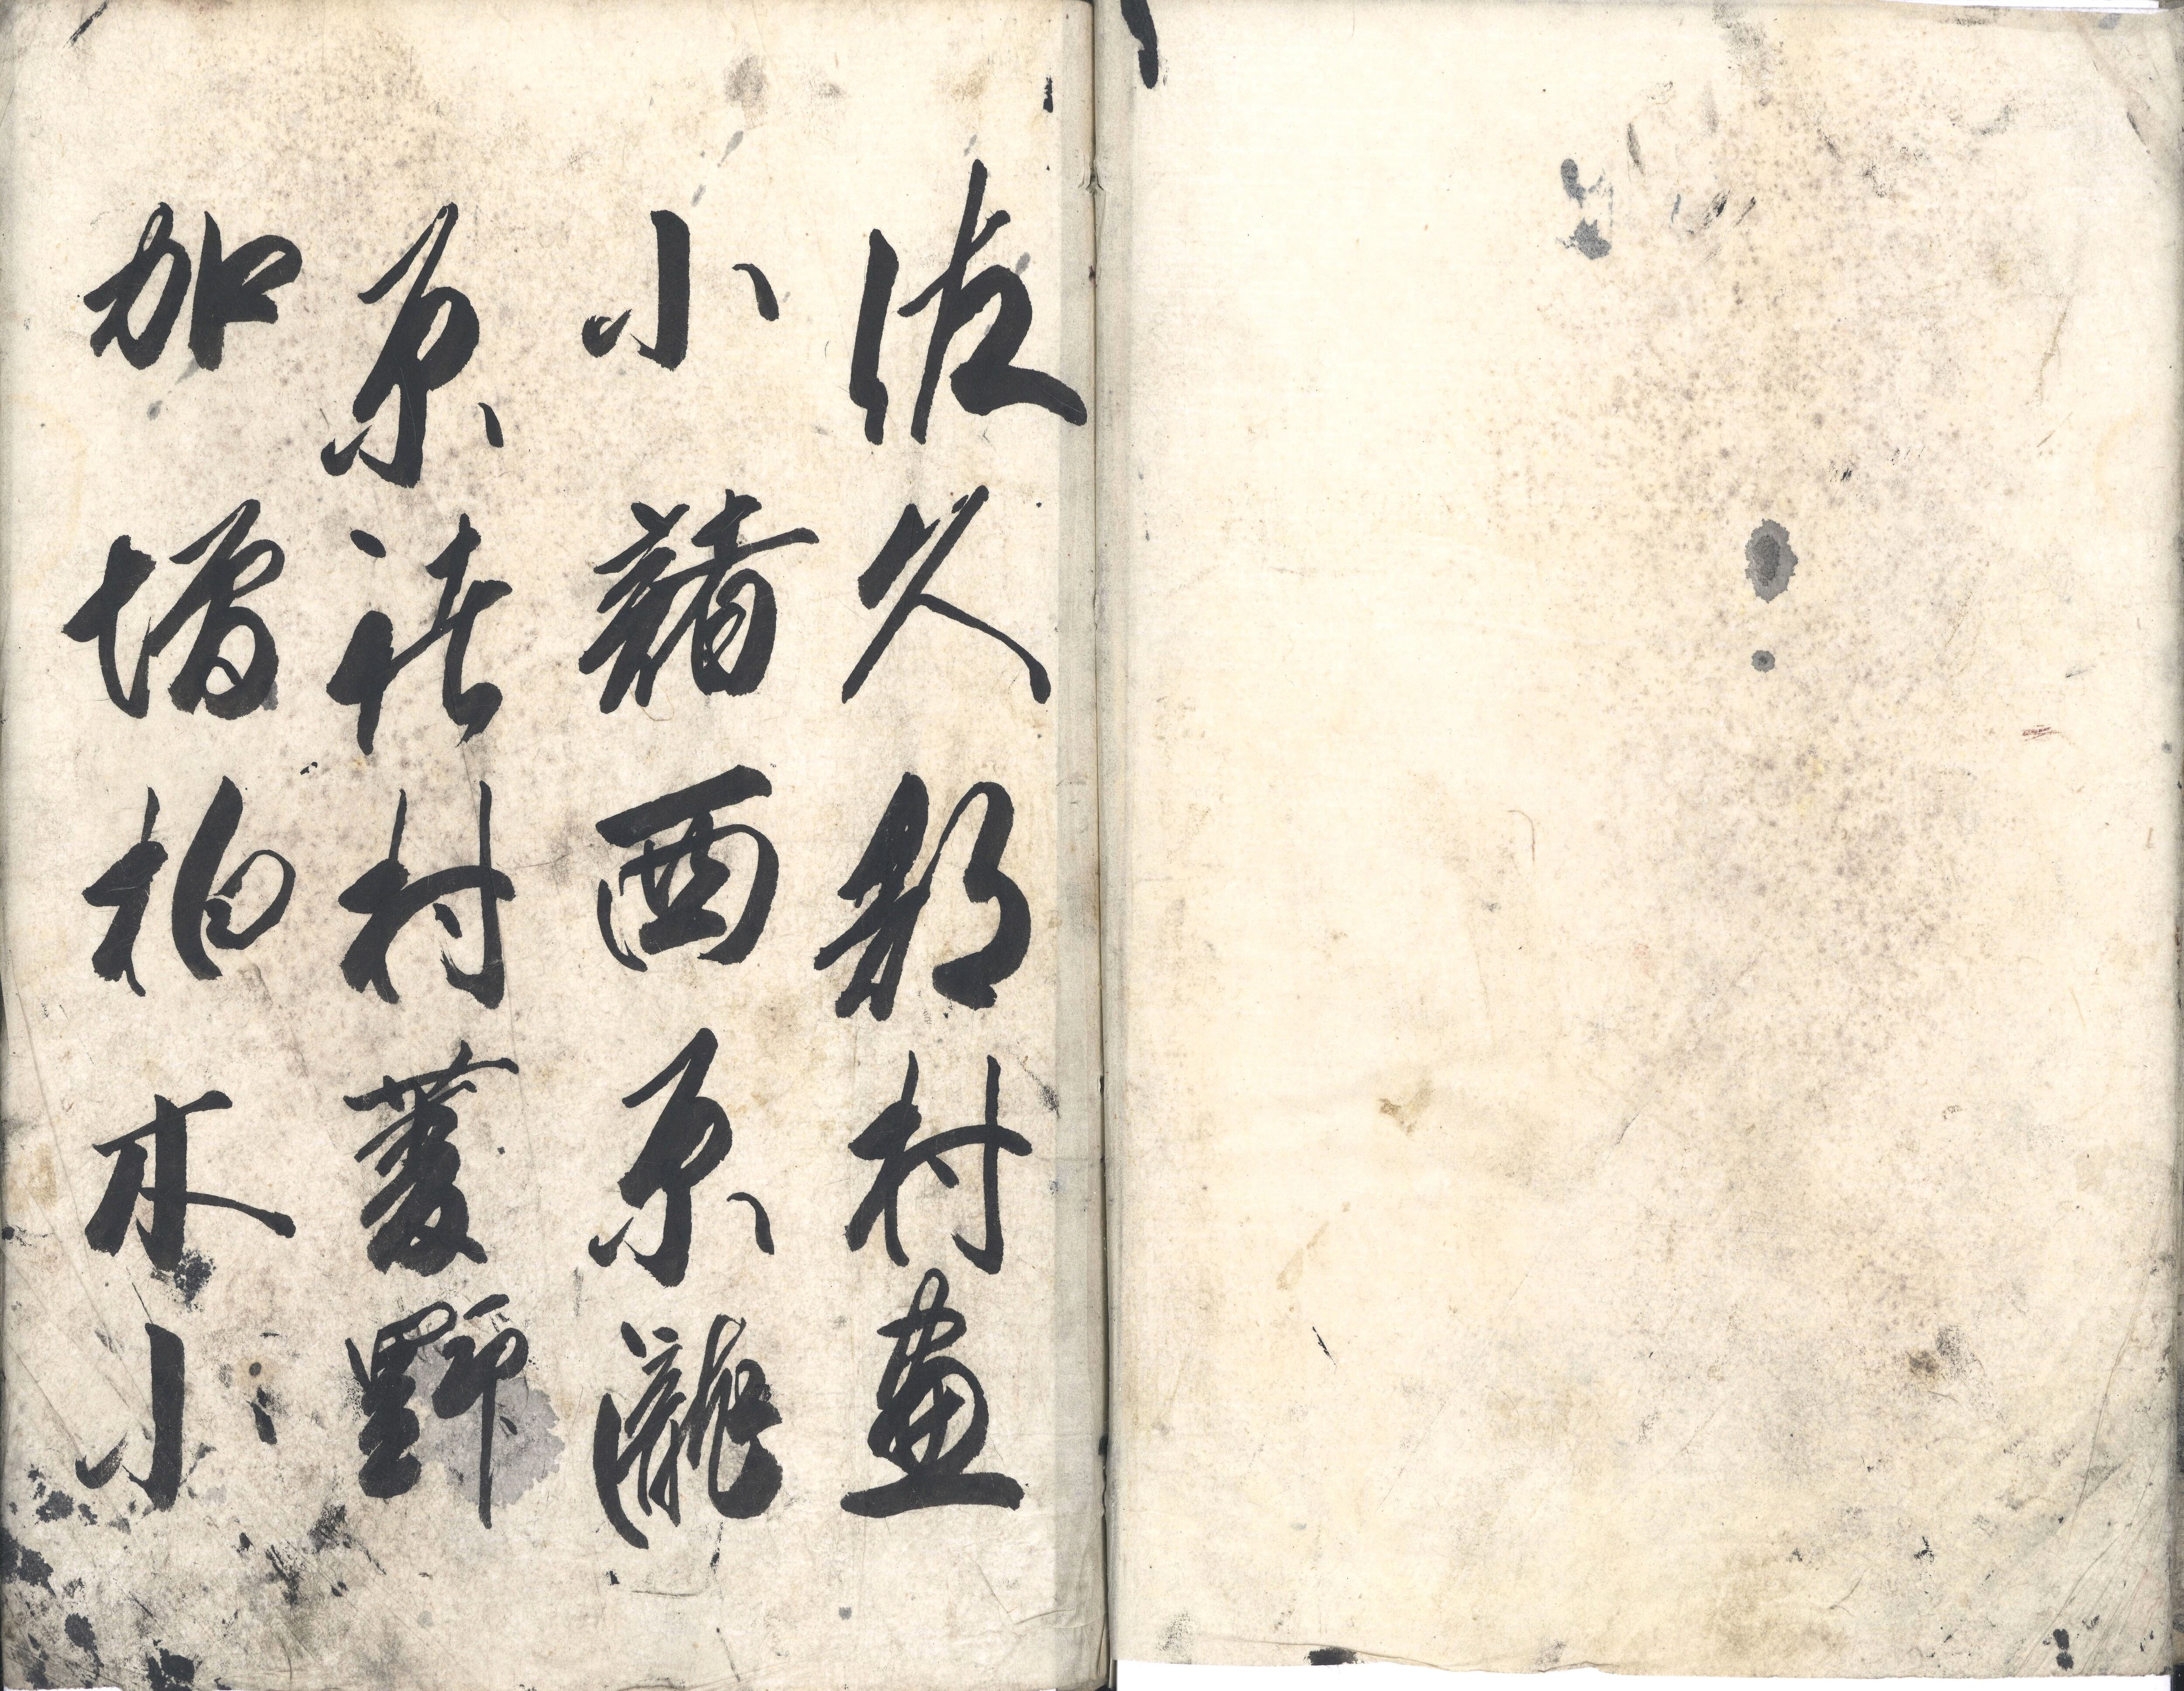 佐久郡村画
小諸西原瀧
原諸村菱野
加増柏木小